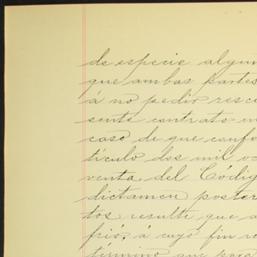 de especie algun
que ambas partes
á no pedir resc
sente contrato ni
caso de que confo
tículo dos mil oc
venta, del Códig
dictamen poster
tos resulte que a
frió, á cuyo fin re
término que para